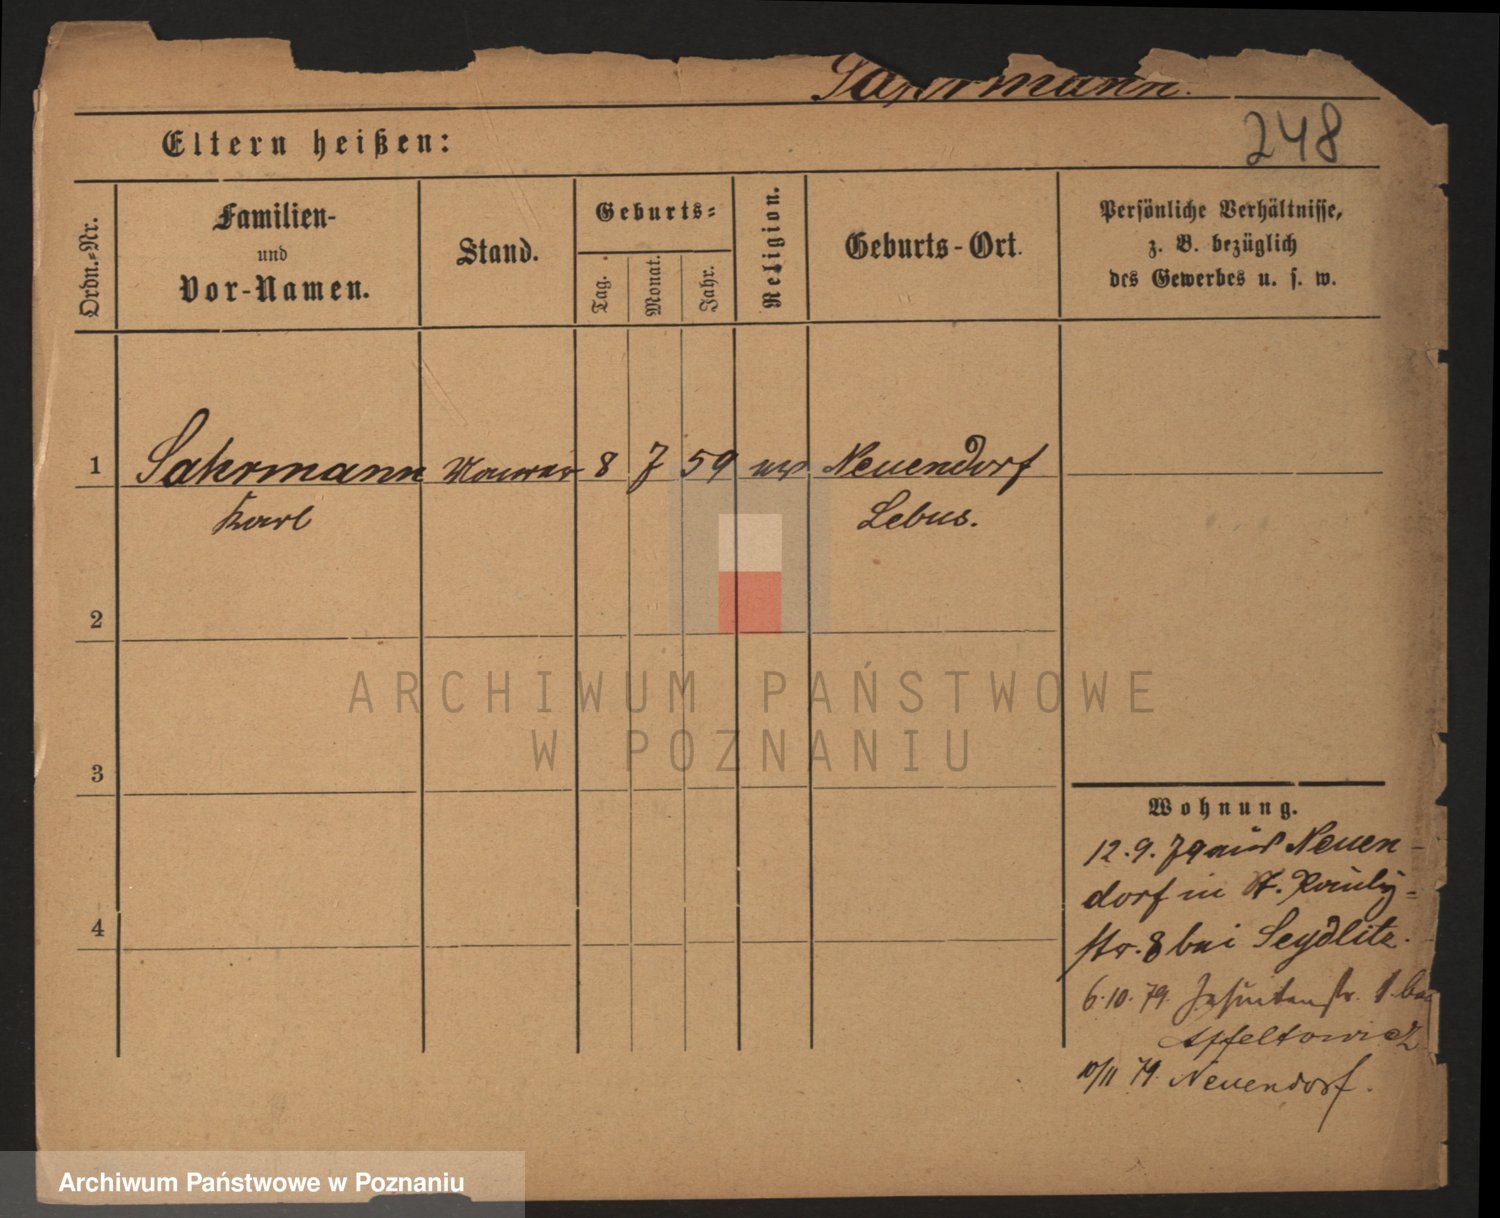 Sahrmann.
248
Eltern heißen:
Ordn.-Nr.
Familien-
und
Vor-Namen.
Stand.
Geburts-
Tag.
Monat.
Jahr.
Religion.
Geburts-Ort.
Persönliche Verhältnisse,
z. B. bezüglich
des Gewerbes u. s. w.
1 Sahrmann Maurer 8 7 59 ev Neuendorf
Karl Lebus.
2
3
4
Wohnung.
12.9.79 aus Neuen-
dorf in St. Pauly-
str. 8 bei Seydlitz.
6.10.79. Jesuitenstr. 1. bei
Apfeltowicz
10/11 79. Neuendorf.
ARCHIWUM PAŃSTWOWE
W POZNANIU
Archiwum Państwowe w Poznaniu